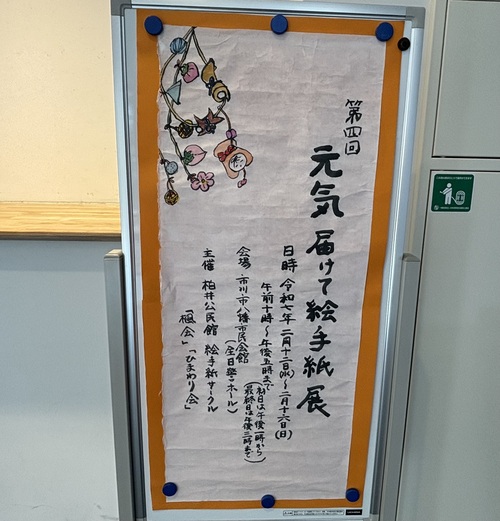 第四回
元気届けて絵手紙展
日時 令和七年 二月十二日(水)~二月十六日(日)
午前十時~午後五時まで
(初日は午後一時から
最終日は午後三時まで)
会場 市川市八幡市民会館
(全日警ホール)
主催 柏井公民館 絵手紙サークル
「楓会」「ひまわり会」